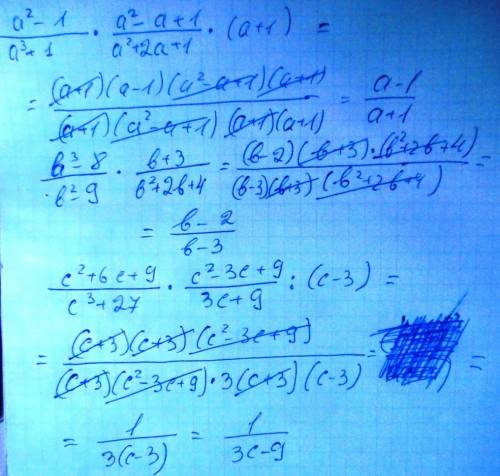 (a²-1)/(a³+1) · (a²-a+1)/(a²+2a+1) · (a+1) =
= ((a+1)(a-1)(a²-a+1)(a+1))/((a+1)(a²-a+1)(a+1)(a+1)) = (a-1)/(a+1)
(в³-8)/(в²-9) · (в+3)/(в²+2в+4) = ((в-2)(в+3)·(в²+2в+4))/((в-3)(в+3)(в²+2в+4)) =
= (в-2)/(в-3)
(c²+6c+9)/(c³+27) · (c²-3c+9)/(3c+9) : (c-3) =
= ((c+3)(c+3)(c²-3c+9))/((c+3)(c²-3c+9)·3(c+3)(c-3)) = =
= 1/(3(c-3)) = 1/(3c-9)